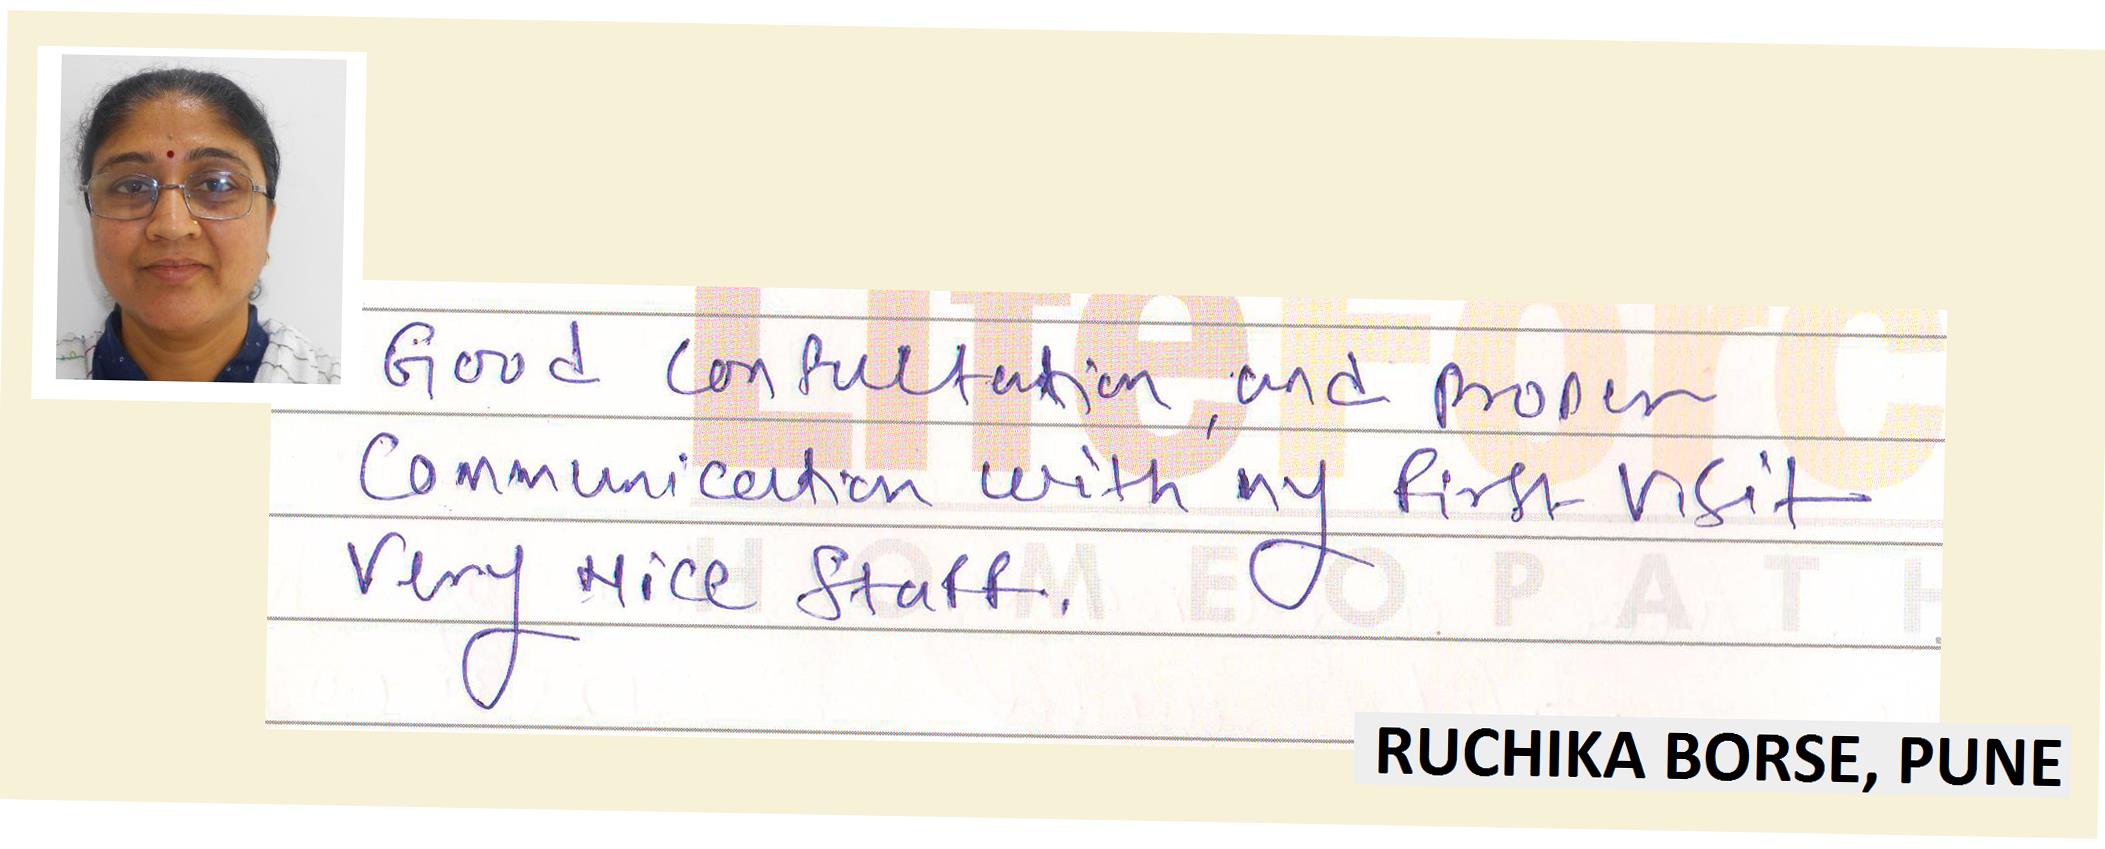 LifeForc
HOMEOPATH
Good Consultation, and proper
Communication with my first visit
Very Nice Staff.
RUCHIKA BORSE, PUNE